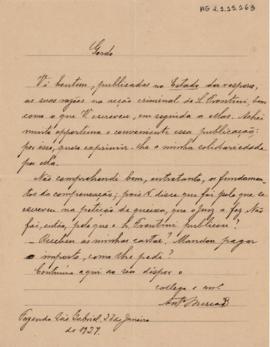 AG 2.2.22.263
Gordo
Vi hontem, publicadas no Estado da vespera,
as suas razões na acção criminal de L. Trventini, bem
como o que V. escreveu, em seguida a ellas. Achei
muito opportuna e conveniente essa publicação;
por isso, quero exprimir-lhe a minha solidariedade
por ella.
Não comprehendo bem, entretanto, os fundamen-
tos da compensação; pois V. disse que foi pelo que es-
creveu na petição de queixa, que o juiz a fez. Não
foi, então, pelo que o L. publicou?
Recebeu as minhas cartas? Mandou pagar
o imposto, como lhe pedi?
Continúa aqui ao seu dispor o
collega e
Fazenda São Gabriel, 2 de Janeiro
de 1927.